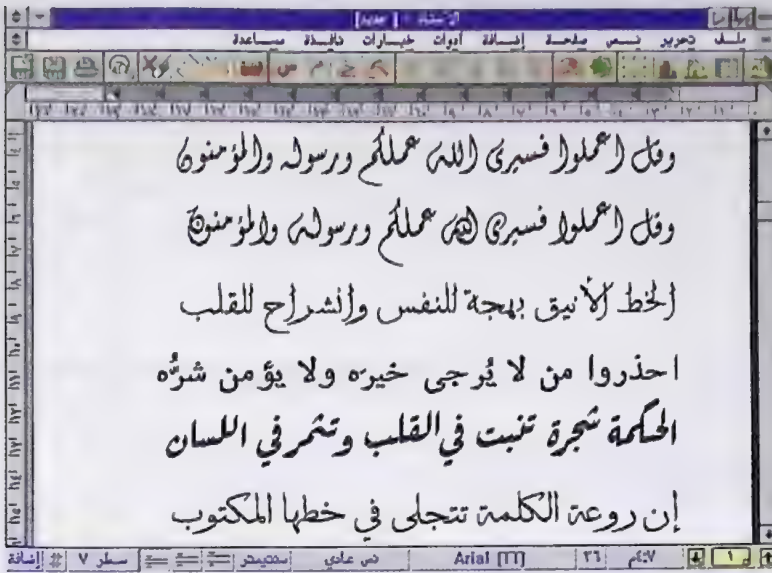 ملف تحرير نص صفحة إضافة أدوات خيارات نافذة مساعدة
وقل اعملوا فسيرى الله عملكم ورسوله والمؤمنون
وقل اعملوا فسيرى الله عملكم ورسوله والمؤمنون
الخط الأنيق بهجة للنفس وانشراح للقلب
احذروا من لا يُرجى خيره ولا يؤمن شرُّه
الحكمة شجرة تنبت في القلب وتثمر في اللسان
إن روعة الكلمة تتجلى في خطها المكتوب
١ ٤:٧م ٣٦ Arial [TT] نص عادي سنتيمتر سطر ٧ إضافة